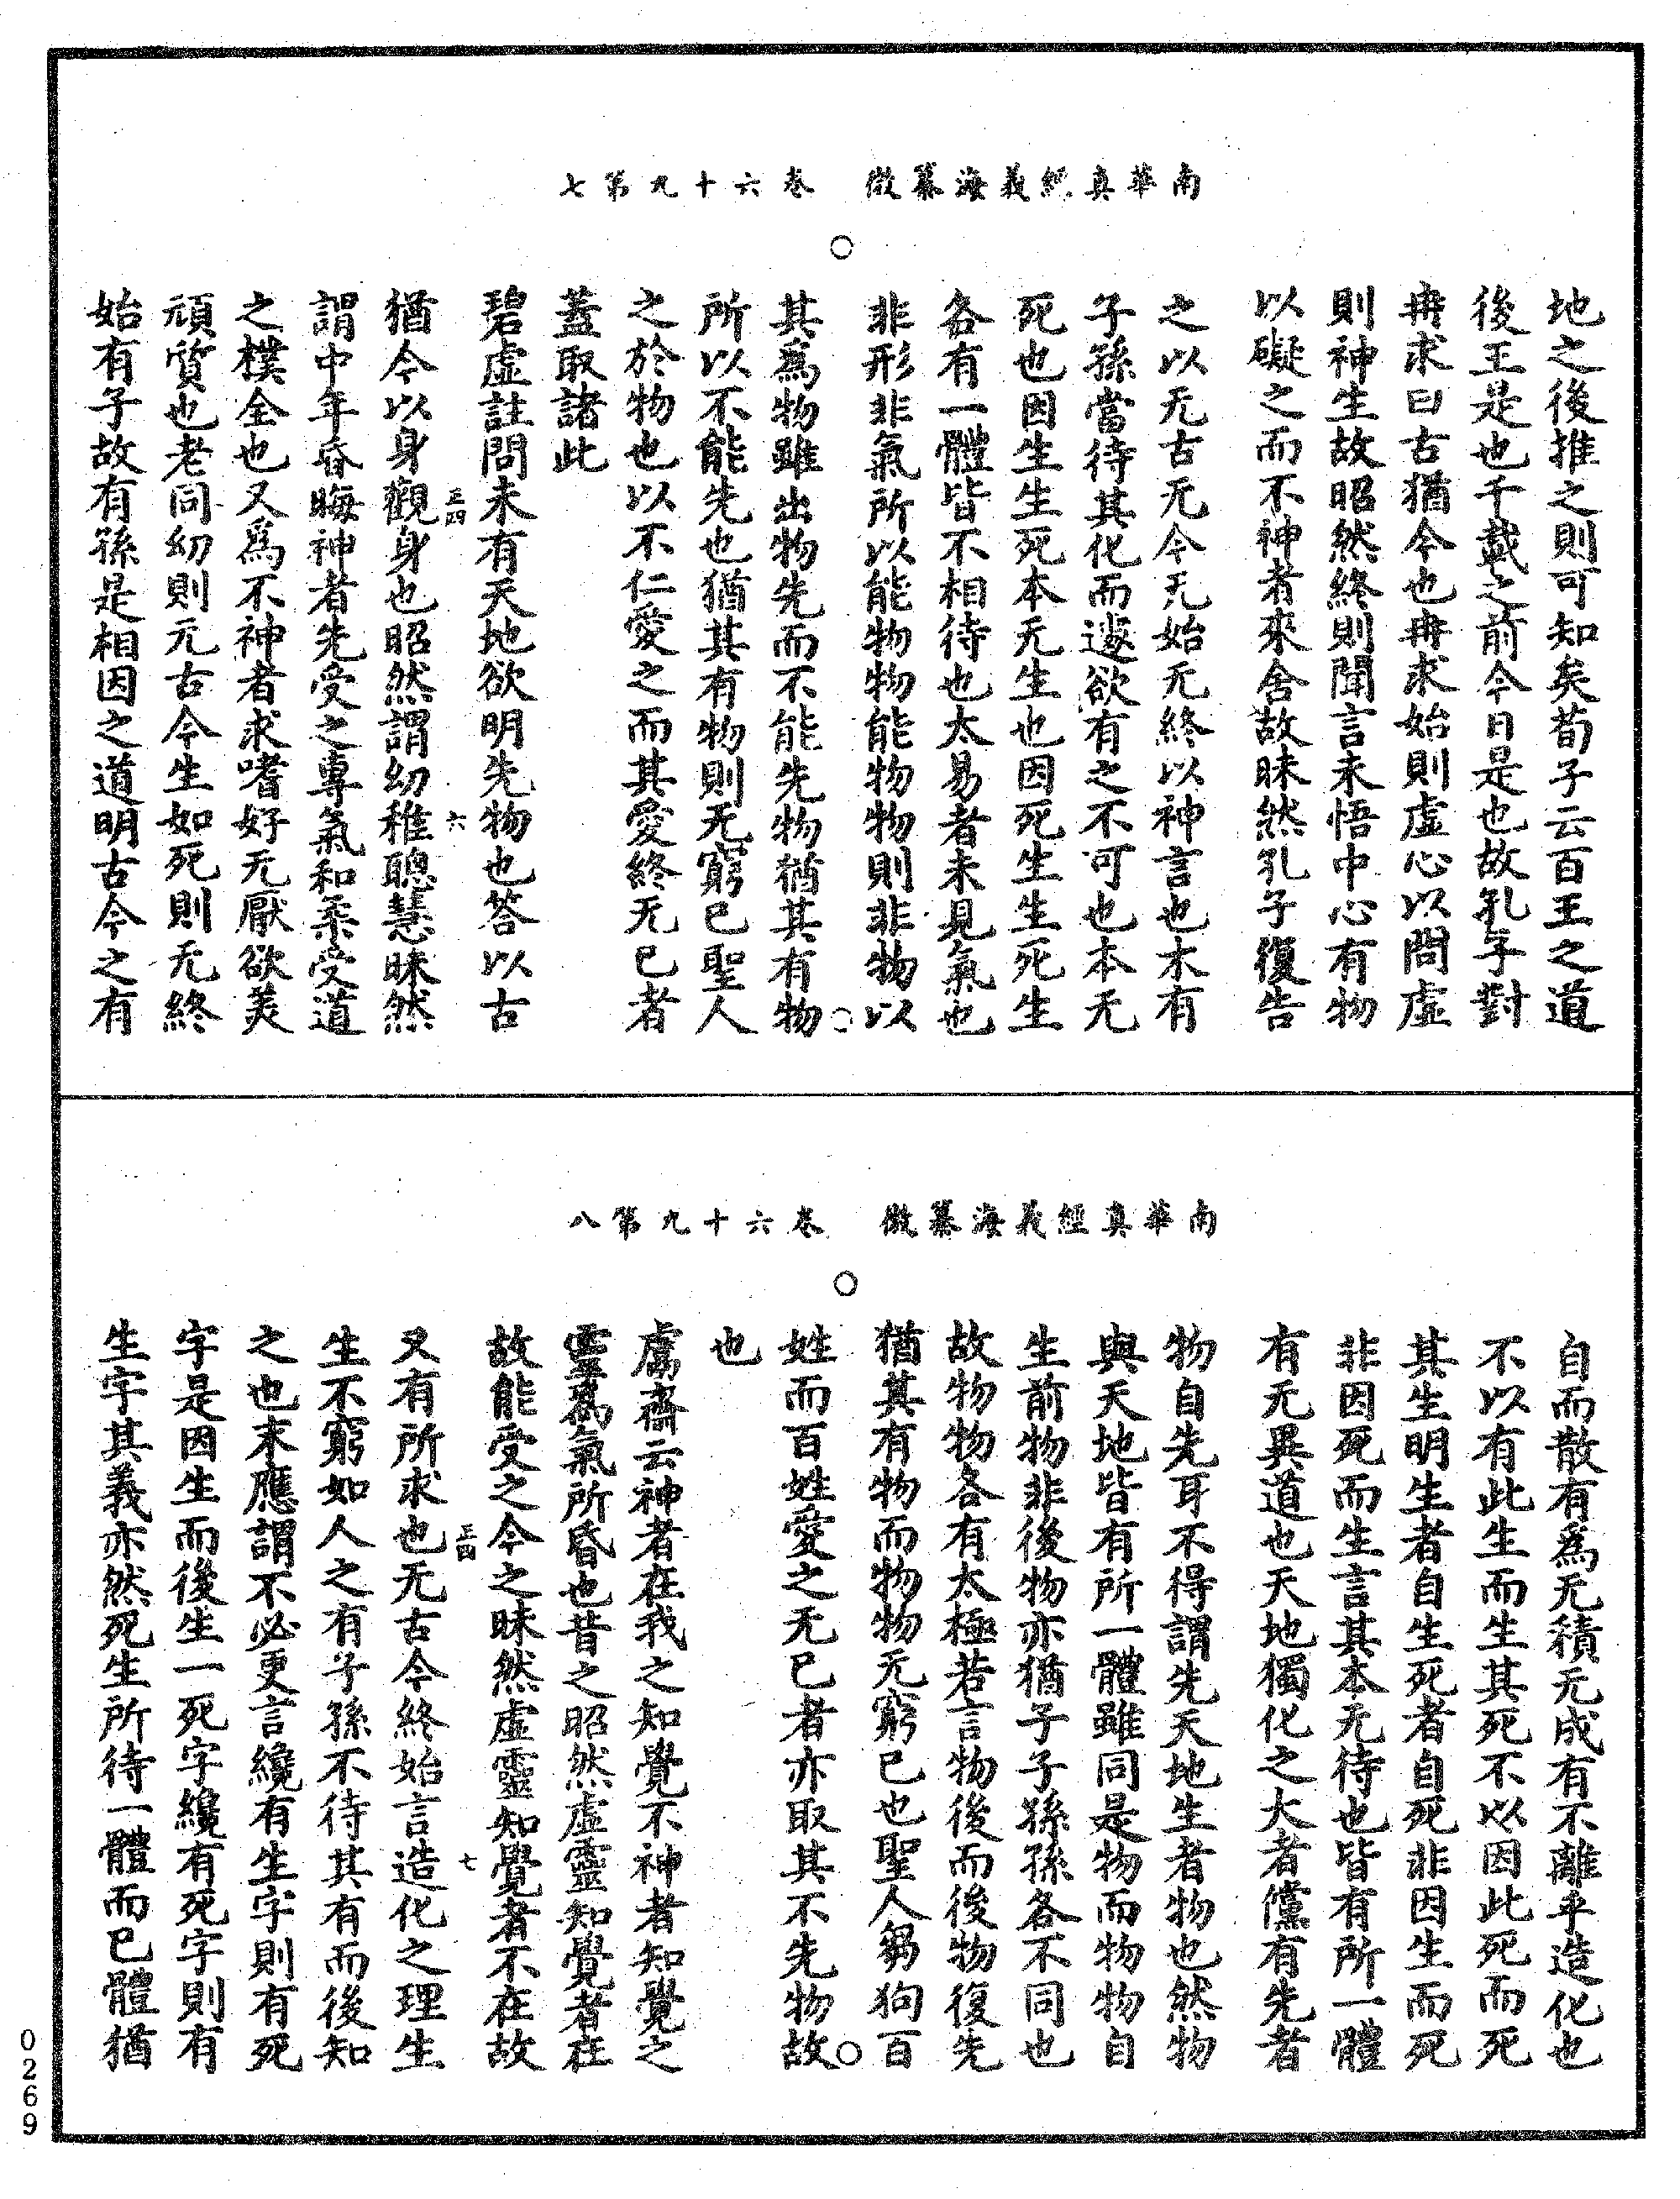 南華真經義海纂微　卷六十九第七
地之後推之則可知矣荀子云百王之道
後王是也千載之前今日是也故孔子對
冉求曰古猶今也冉求始則虛心以問虛
則神生故昭然終則聞言未悟中心有物
以礙之而不神者來舍故昧然孔子復告
之以无古无今无始无終以神言也木有
子孫當待其化而遽欲有之不可也本无
死也因生生死本无生也因死生生死生
各有一體皆不相待也太易者未見氣也
非形非氣所以能物物能物物則非物以
其爲物雖出物先而不能先物猶其有物
所以不能先也猶其有物則无窮已聖人
之於物也以不仁愛之而其愛終无已者
蓋取諸此
碧虛註問未有天地欲明先物也荅以古
猶今以身觀身也昭然謂幼稚聰慧昧然
謂中年昏晦神者先受之專氣和柔受道
之樸全也又爲不神者求嗜好无厭欲美
頑質也老同幼則元古今生如死則无終
始有子故有孫是相因之道明古今之有
正四
六
南華真經義海纂微　卷六十九第八
自而散有爲无積无成有不離乎造化也
不以有此生而生其死不以因此死而死
其生明生者自生死者自死非因生而死
非因死而生言其本无待也皆有所一體
有无異道也天地獨化之大者儻有先者
物自先耳不得謂先天地生者物也然物
與天地皆有所一體雖同是物而物物自
生前物非後物亦猶子子孫孫各不同也
故物物各有太極若言物後而後物復先
猶其有物而物物无窮已也聖人芻狗百
姓而百姓愛之无已者亦取其不先物故
也
鬳齋云神者在我之知覺不神者知覺之
靈爲氣所昏也昔之昭然虛靈知覺者在
故能受之今之昧然虛靈知覺者不在故
又有所求也无古今終始言造化之理生
生不窮如人之有子孫不待其有而後知
之也末應謂不必更言纔有生字則有死
字是因生而後生一死字纔有死字則有
生字其義亦然死生所待一體而已體猶
正四
七
0269